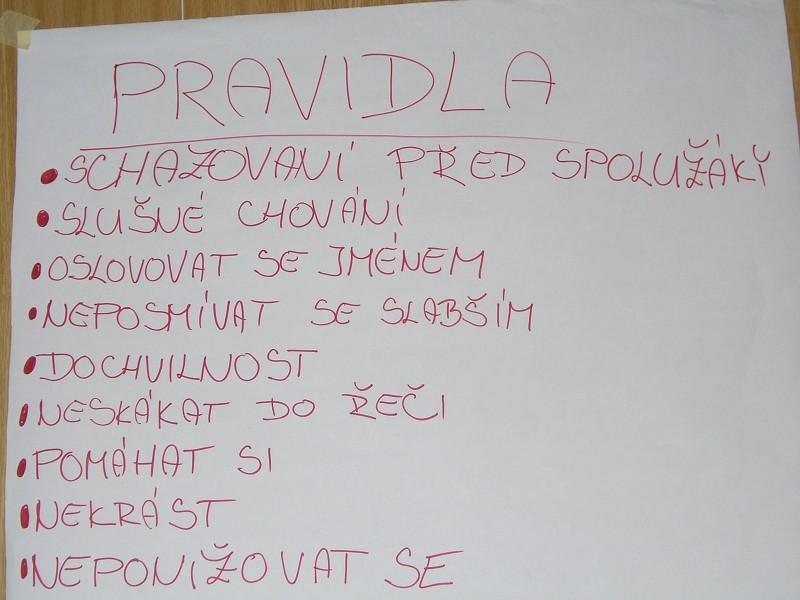 PRAVIDLA
SCHAŽOVANÍ PŘED SPOLUŽÁKĬ
SLUŠNÉ CHOVÁNÍ
OSLOVOVAT SE JMÉNEM
NEPOSMÍVAT SE SLABŠÍM
DOCHVILNOST
NESKÁKAT DO ŘEČI
POMÁHAT SI
NEKRÁST
NEPONIŽOVAT SE